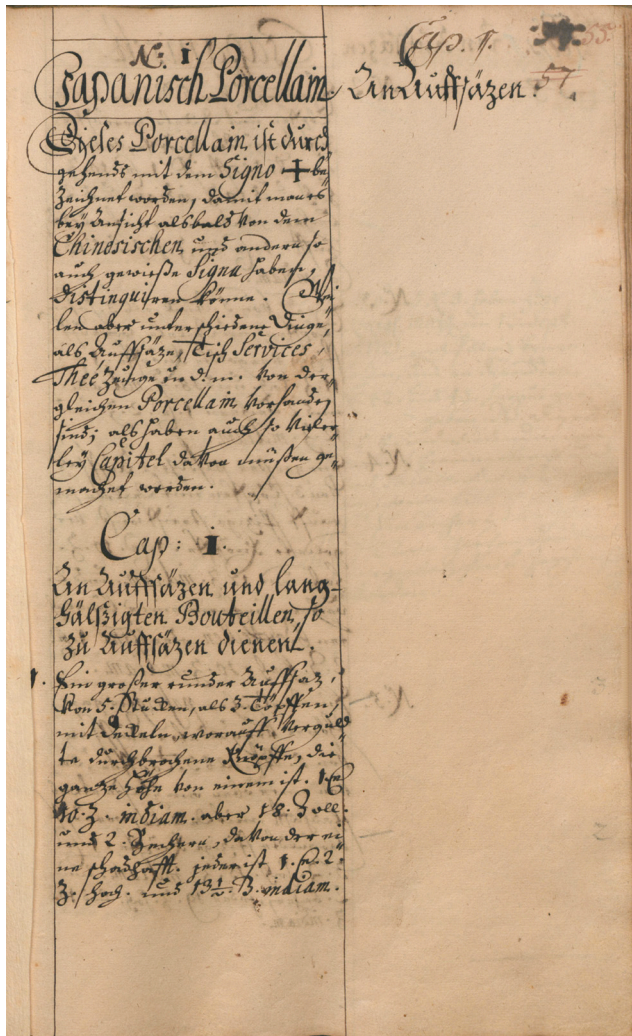 N: 1
Japanisch Porcellain.
Dieses Porcellain, ist durch
gehends mit dem Signo + be=
zeichnet worden, damit man es
bey Ansicht alsbald von dem
Chinesischen, und andern so
auch gewiße Signa haben,
distinguiren könne. Wei=
len aber unterschiedene Dinge,
als Auffsäze, Tisch Services,
Theé Zeuge u. d. m. von der=
gleichen Porcellain vorhanden
sind; als haben auch so vieler=
ley Capitel davon müßen ge=
machet werden.
Cap: 1.
An Auffsäzen und lang=
hälßigten Bouteillen, so
zu Auffsäzen dienen.
1. Ein großer runder Auffsaz,
von 5. Stücken, als 3. Töpffen,
mit Deckeln, worauff verguld=
te durchbrochene Knöpffe, die
ganze Höhe von einem ist. 1. E
10. Z. in diam. aber 18. Zoll.
und 2. Bechern, davon der ei=
ne schadhafft. jeder ist 1. E. 2.
Z. hoch. und 13½. Z. in diam.
Cap. 1.
An Auffsäzen.
55.
57.